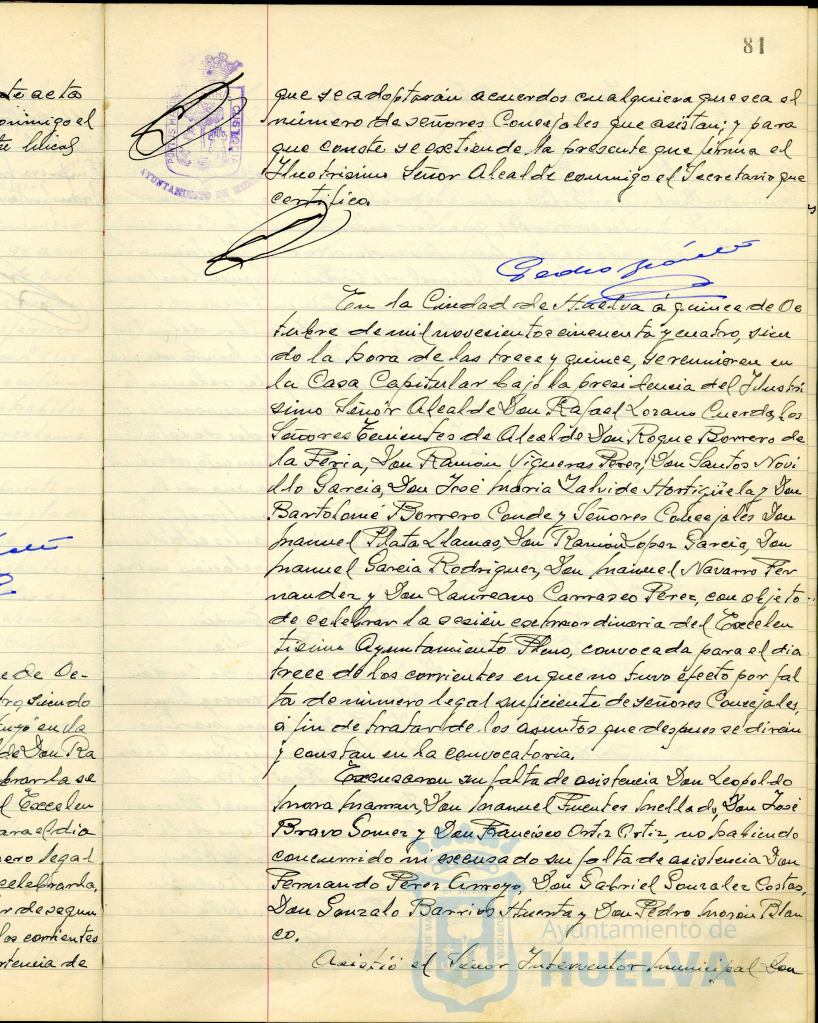 81
te acta
conmigo el
que se adoptarán acuerdos cualquiera que sea el
número de señores Concejales que asistan; y para
que conste se extiende la presente que firma el
Ilustrísimo Señor Alcalde conmigo el Secretario que
certifico.
PORTUS MARIS
CUSTODIA
AYUNTAMIENTO DE HUELVA
Pedro
En la Ciudad de Huelva á quince de Oc
tubre de mil novecientos cincuenta y cuatro, sien
do la hora de las trece y quince, se reunieron en
la Casa Capitular bajo la presidencia del Ilustrí
simo Señor Alcalde Don Rafael Lozano Cuerda, los
Señores Tenientes de Alcalde Don Roque Borrero de
la Feria, Don Ramón Vigueras Perez, Don Santos Novi
llo García, Don José María Zalvide Hortigüela y Don
Bartolomé Borrero Conde y Señores Concejales Don
Manuel Plata Llamas, Don Ramón Lopez García, Don
Manuel García Rodríguez, Don Manuel Navarro Fer
nandez y Don Laureano Carrasco Pérez, con objeto
de celebrar la sesión extraordinaria del Excelen
tísimo Ayuntamiento Pleno, convocada para el día
trece de los corrientes en que no tuvo efecto por fal
ta de número legal suficiente de señores Concejales,
á fin de tratar de los asuntos que despues se dirán
y constan en la convocatoria.
Excusaron su falta de asistencia Don Leopoldo
Mora Don Manuel Fuentes Mellado, Don José
Bravo Gomez y Don Francisco Ortiz Ortiz, no habiendo
concurrido ni excusado su falta de asistencia Don
Fernando Pérez Arroyo, Don Gabriel Gonzalez Costas,
Don Gonzalo Barrios Huerta y Don Pedro Morón Blan
co.
Asistió el Señor Interventor Municipal Don
e de Oc-
tro, siendo
en la
de Don Ra
brar la se
l Excelen
ara el día
mero legal
celebrarla,
r de segun
los corrientes
rtencia de
Ayuntamiento de
HUELVA